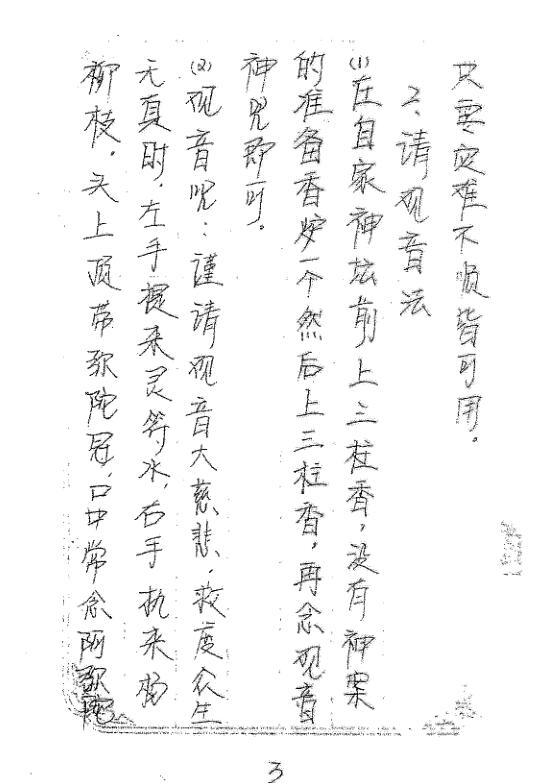 只要灾难不顺皆可用。
2、请观音法
(1)在自家神坛前上三柱香，没有神案
的准备香炉一个然后上三柱香，再念观音
神咒即可。
(2)观音咒：谨请观音大慈悲．救度众生
无夏时．左手提来灵符水．右手执来杨
柳枝．头上顶带弥陀冠．口中常念阿弥陀
3